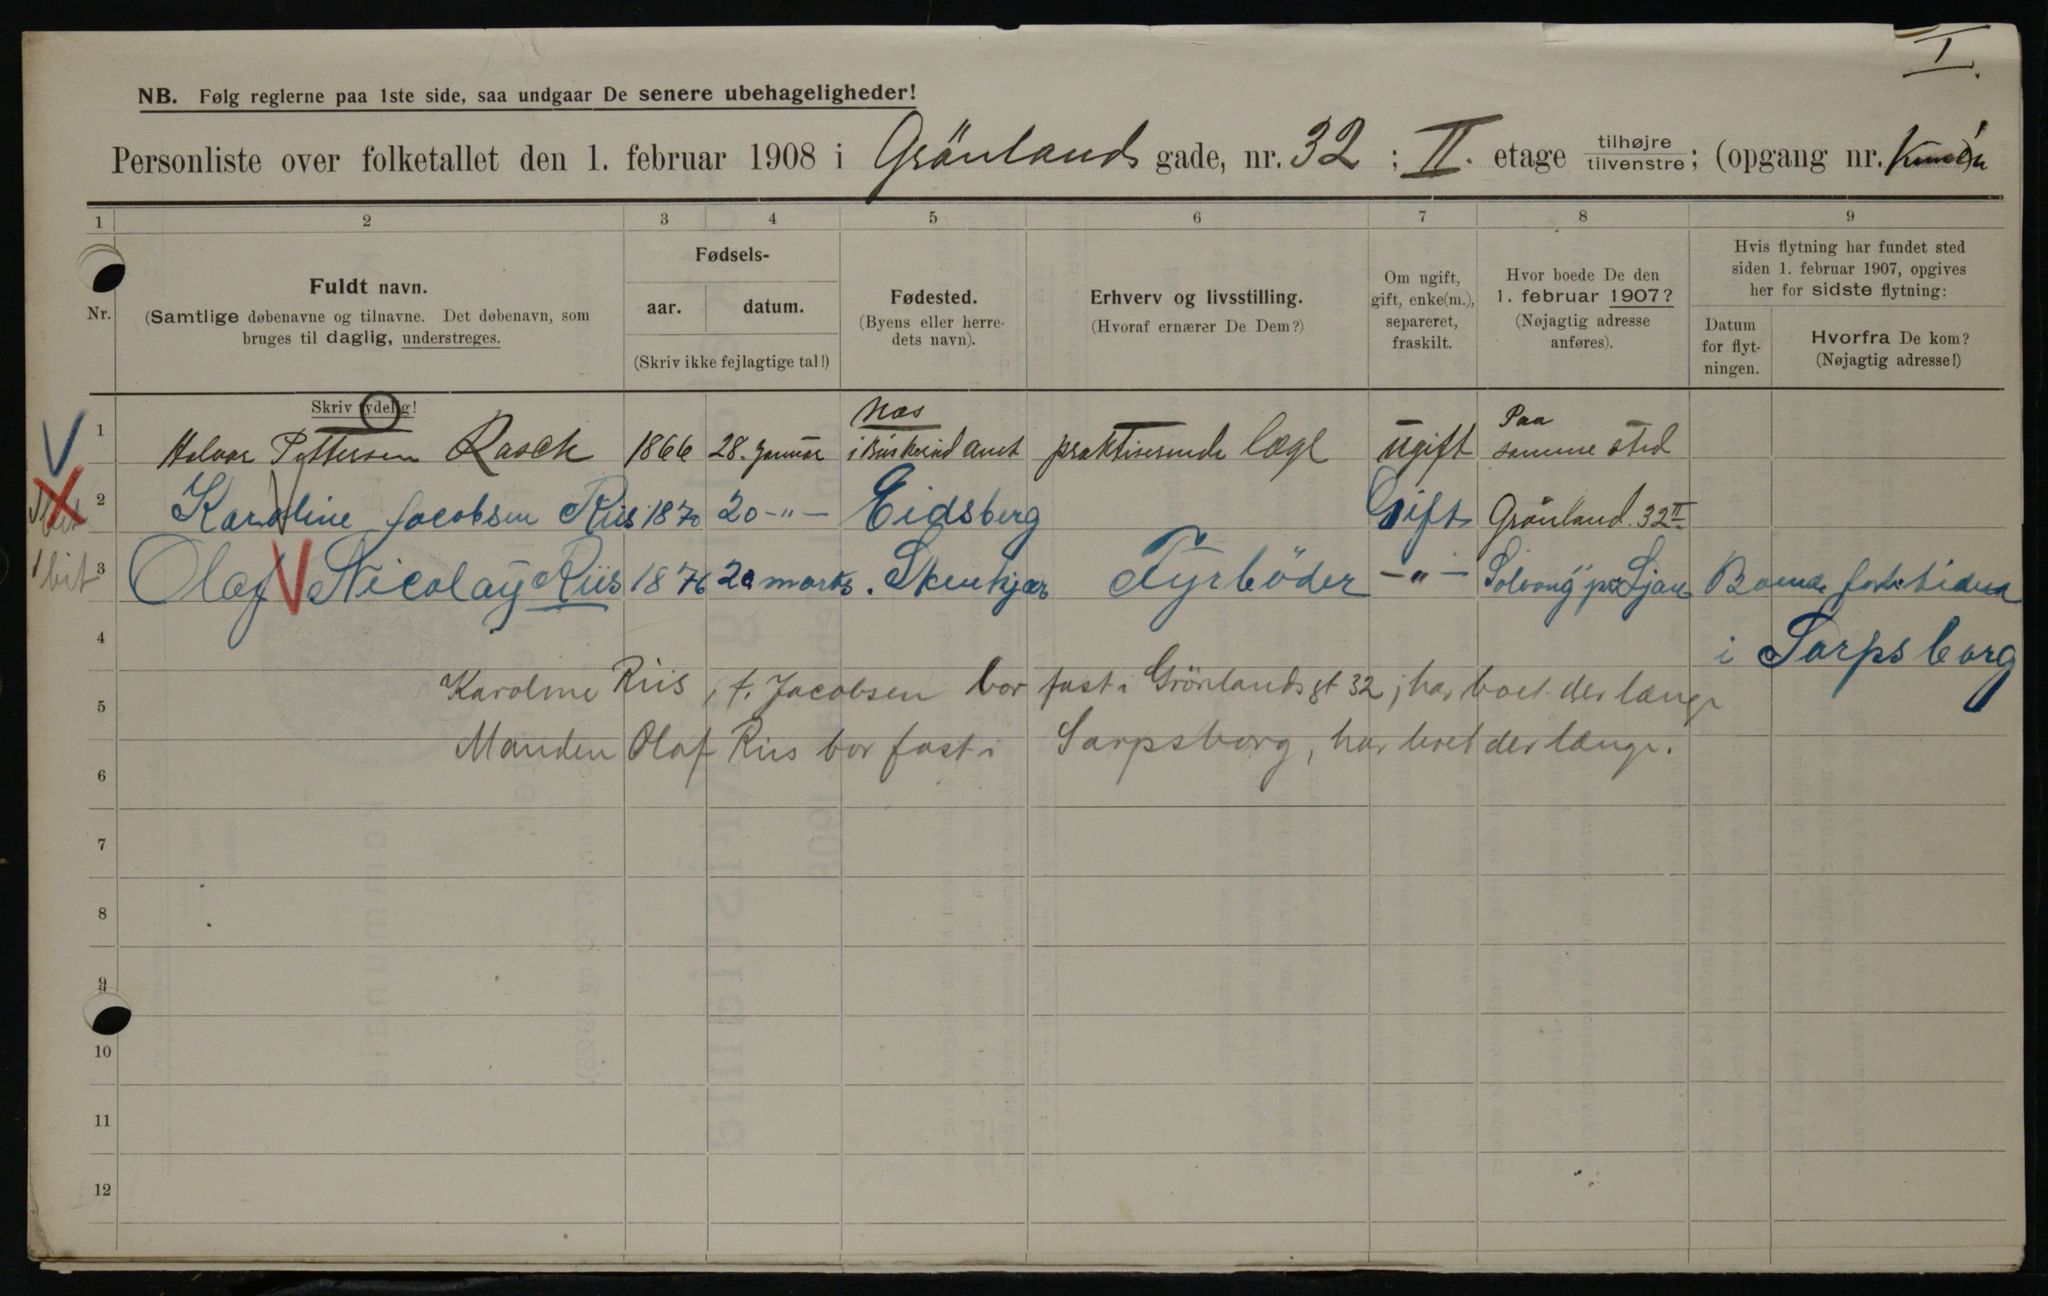 I.
NB. Følg reglerne paa 1ste side, saa undgaar De senere ubehageligheder!
Personliste over folketallet den 1. februar 1908 i Grönlands gade, nr. 32 ; II. etage tilhøjre tilvenstre; (opgang nr.
1 2 3 4 5 6 7 8 9
Nr.
Fuldt navn.
(Samtlige døbenavne og tilnavne. Det døbenavn, som
bruges til daglig, understreges.
Skriv tydelig!
Fødsels-
aar. datum.
(Skriv ikke fejlagtige tal!)
Fødested.
(Byens eller herre-
dets navn).
Erhverv og livsstilling.
(Hvoraf ernærer De Dem?)
Om ugift,
gift, enke(m.),
separeret,
fraskilt.
Hvor boede De den
1. februar 1907?
(Nøjagtig adresse
anføres).
Hvis flytning har fundet sted
siden 1. februar 1907, opgives
her for sidste flytning:
Datum
for flyt-
ningen.
Hvorfra De kom?
(Nøjagtig adresse!)
Næs Paa
1 Halvor Pettersen Rasck 1866 28. Januar i Buskerud amt praktiserende læge ugift samme sted
2 Karoline Jacobsen Riis 1870 20 -"- Eidsberg Gift Grönland. 32 II
bit 3 Olaf Nicolay Riis 1876 20 marts. Skeithjær Fyrböder -"- pr Ljan
4 i Sarpsborg
Karoline Riis, f. Jacobsen bor fast i Grönlandsgt 32, har boet der længe
5
Manden Olaf Riis bor fast i Sarpsborg, har boet der længe.
6
7
8
9
10
11
12